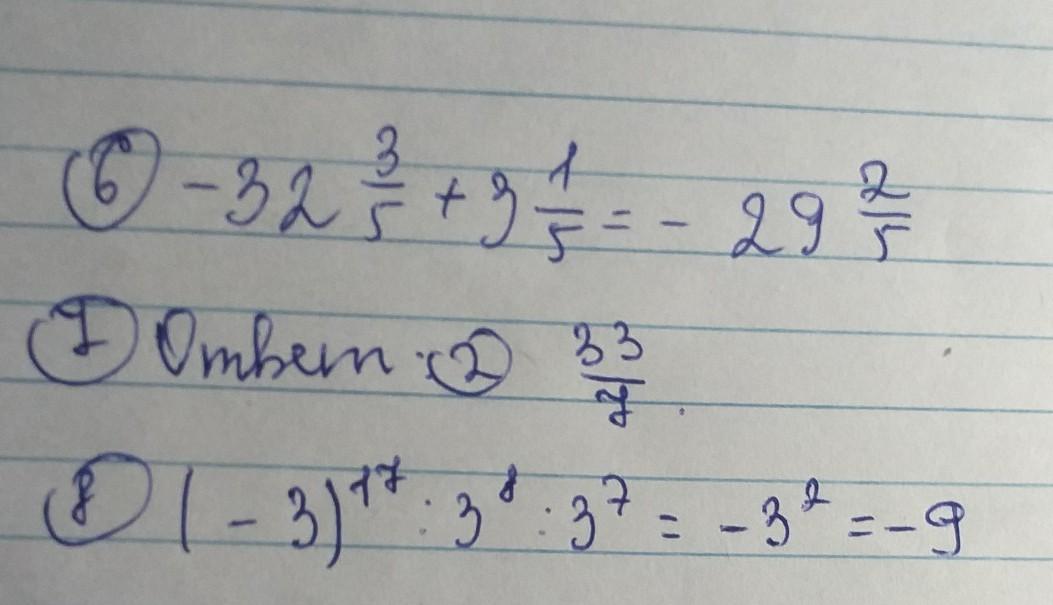 ⑥ -32 3/5 + 3 1/5 = - 29 2/5
⑦ Ответ: ② 33/7.
⑧ (-3)¹⁷ : 3⁸ : 3⁷ = -3² = -9